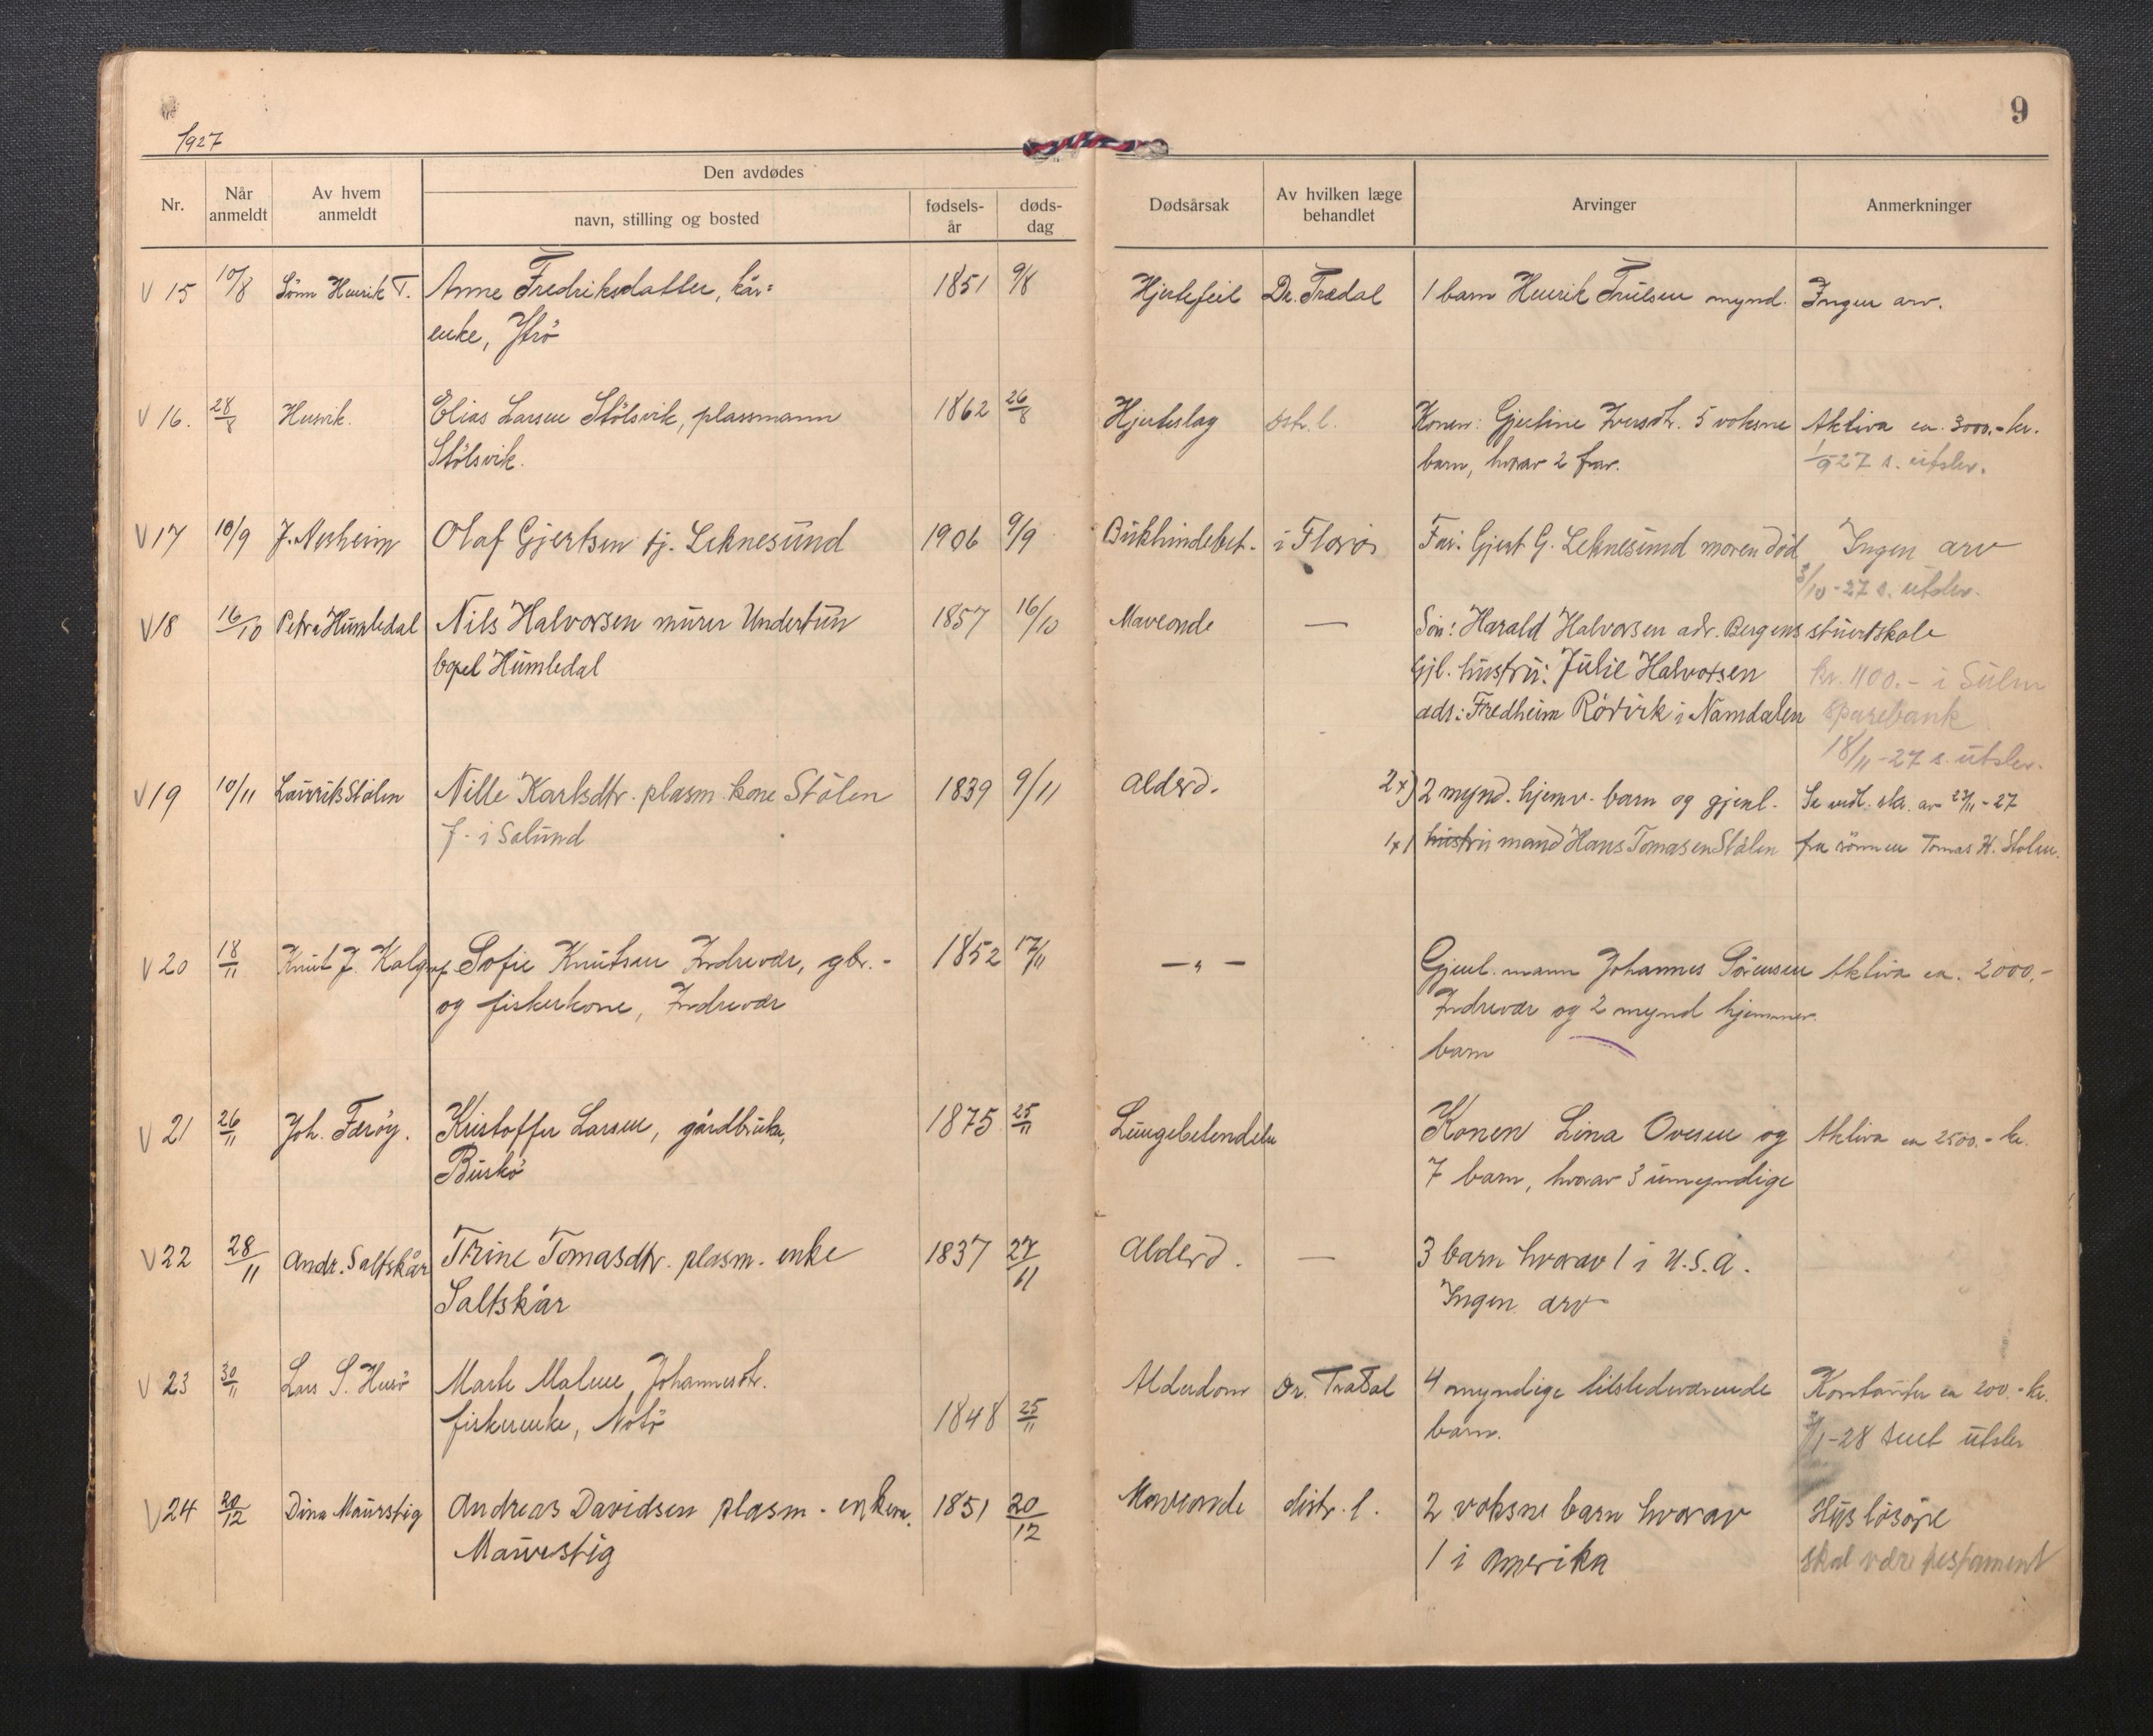 9
1927
Den avdødes
Nr. Når anmeldt Av hvem anmeldt navn, stilling og bosted fødsels-år døds-dag Dødsårsak Av hvilken læge behandlet Arvinger Anmerkninger
V 15 10/8 Sönn Henrik T. Anne Fredriksdatter, kår= 1851 9/8 Hjertefeil Dr. Trædal 1 barn Henrik Trulsen mynd. Ingen arv.
enke, Ytrö
V 16. 28/8 Husvik. Elias Larsen Stölsvik, plassmann 1862 26/8 Hjerteslag distr. l. Konen: Gjertine Iversdtr. 5 voksne Aktiva ca. 3000.- kr.
Stölsvik. barn, hvorav 2 frav. 1/9 27 s. utslev.
V 17 10/9 J. Nesheim Olaf Gjertsen tj. Leknesund 1906 9/9 Bukhindebet. i Florö Far: Gjert G. Leknesund moren död Ingen arv
3/10-27 s. utslev.
V 18 16/10 Petra Humledal Nils Halvorsen murer Undertun 1857 16/10 Maveonde — Sön: Harald Halvorsen adr. Bergens stuertskole
bopel Humledal Gjl. hustru: Julie Halvorsen kr. 1100.- i Sulen
adr: Fredheim Rörvik i Namdalen Sparebank
18/11-27 s. utslev.
V 19 10/11 Laurits Stölen Nille Karlsdtr. plasm. kone Stölen 1839 9/11 Alderd. 2x) 2 mynd. hjemv. barn og gjenl. Se vedl. skr. av 22/11-27
f. i Solund 1x) hustru mand Hans Tomasen Stölen fra sönnen Tomas H. Stölen.
V 20 18/11 Knut J. Kalgraf Sofie Knutsen Indrevær, gbr.- 1852 17/11 —„— Gjenl. mann Johannes Sörensen Aktiva ca. 2000.-
og fiskerkone, Indrevær Indrevær og 2 mynd hjemmev.
barn
V 21 26/11 Joh. Færöy. Kristoffer Larsen, gårdbruker, 1875 25/11 Lungebetendelse Konen Lina Ovesen og Aktiva ca 2500.- kr.
Buskö 7 barn, hvorav 3 umyndige
V 22 28/11 Andr. Saltskår Trine Tomasdtr. plasm. enke 1837 27/11 Alderd. — 3 barn hvorav 1 i U.S.A.
Saltskår Ingen arv
V 23 30/11 Lars S. Husö Marte Malene Johannesdtr. Alderdom Dr. Trædal 4 myndige tilstedeværende Kontanter ca 200.- kr.
fiskerenke, Notö 1848 25/11 barn. 3/1-28 sent utslev
V 24 20/12 Dina Maurstig Andreas Davidsen plasm. enkem. 1851 20/12 Maveonde distr. l. 2 voksne barn hvorav Hus lösöre
Maurstig 1 i Amerika skal være testament